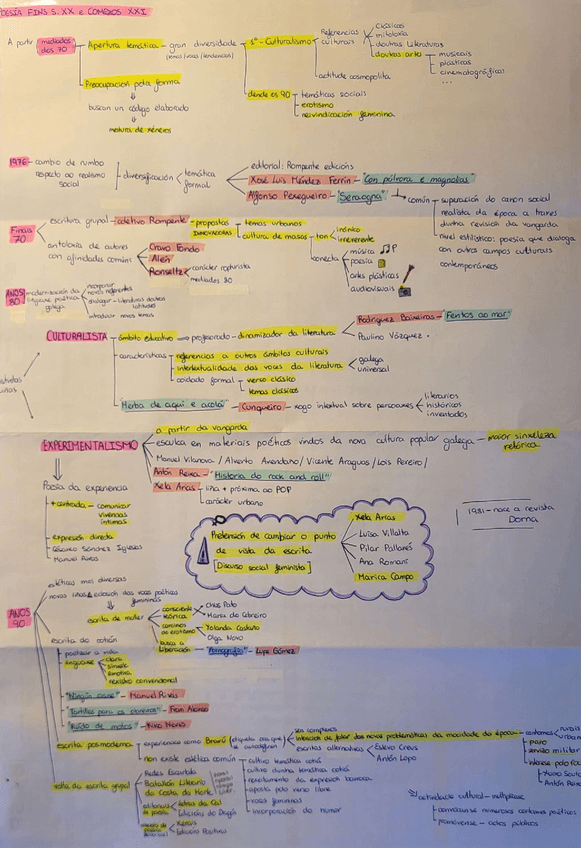 POESÍA FINS S. XX e COMEZOS XXI
A partir mediados dos 70
Apertura temática - gran diversidade
1º - Culturalismo
Referencias culturais
Clásicos
mitoloxía
doutras literaturas
doutras artes
musicais
plásticas
cinematográficas
...
actitude cosmopolita
dende os 90
temáticas sociais
erotismo
reivindicación feminina
Preocupación pola forma
buscan un código elaborado
mestura de xéneros
1976 - cambio de rumbo respecto ao realismo social
diversificación
temática
formal
editorial: Rompente edicións
Xosé Luís Méndez Ferrín - "Con pólvora e magnolias"
Alfonso Pexegueiro - "Seraogna"
común
superación do canon social realista da época a través dunha revisión da vangarda
nivel estilístico: poesía que dialoga con outros campos culturais contemporáneos
Finais 70
escritura grupal - colectivo Rompente - propostas INNOVADORAS
temas urbanos
cultura de masas
ton
irónico
irreverente
conecta
música
poesía
artes plásticas
audiovisuais
antoloxía de autores con afinidades comúns
Cravo Fondo
Alén
Ronseltz
carácter rupturista
mediados 80
ANOS 80
modernización da linguaxe poética galega
incorporar novos referentes
dialogar - literaturas doutras latitudes
introducir novos temas
CULTURALISTA
ámbito educativo - profesorado - dinamizador da literatura
Rodríguez Baixeras - "Fentos ao mar"
Paulino Vázquez.
características
referencias a outros ámbitos culturais
intertextualidade das voces da literatura
galega
universal
coidado formal
verso clásico
temas clásicos
Herba de aquí e acolá - Cunqueiro - xogo intextual sobre personaxes
literarios
históricos
inventados
EXPERIMENTALISMO
a partir da vangarda
escultca en materiais poéticos vindos da nova cultura popular galega - maior sinxeleza retórica
Manuel Vilanova / Alberto Avendaño / Vicente Araguas / Lois Pereiro /
Antón Reixa - "Historia do rock and roll"
Xela Arias
liña + próxima ao POP
carácter urbano
Poesía da experiencia
+ centrada - comunicar vivencias íntimas
expresión directa
Cesáreo Sánchez Iglesias
Manuel Rivas
Pretensión de cambiar o punto de vista da escrita
[Discurso social feminista]
Xela Arias
Luísa Villalta
Pilar Pallarés
Ana Romaní
Marica Campo
1981 - nace a revista Dorna
ANOS 90
estéticas moi diversas
novas liñas eclosión das voces poéticas femininas
escrita de muller
consciente
teórica
Chus Pato
María do Cebreiro
camiños ao erotismo
Yolanda Castaño
Olga Novo
busca a liberación - "Pornografía" - Lupe Gómez
escrita do cotián
poetizar a vida
linguaxe
clara
sinxela
emotiva
rexistro convencional
"Ningún cisne" - Manuel Rivas
"Tortillas para os obreiros" - Fran Alonso
"Ruído de motos" - Kiko Neves
escrita posmoderna
experiencias como Bravú
sen complexos
intención de falar dos novos problemáticas da mocidade da época
escritas alternativas
Estevo Creus
Antón Lopo
paro
servizo militar
non existe estética común
volta da escrita grupal
Redes Escarlata
Batallón Literario da Costa da Morte
cultivo temática cotiá
cultivo dunha temática cotiá
aposta polo verso libre
voces femininas
incorporación do humor
Xerais
actividade cultural - multiplícase
convócanse numerosos certames poéticos
promóvense - actos públicos